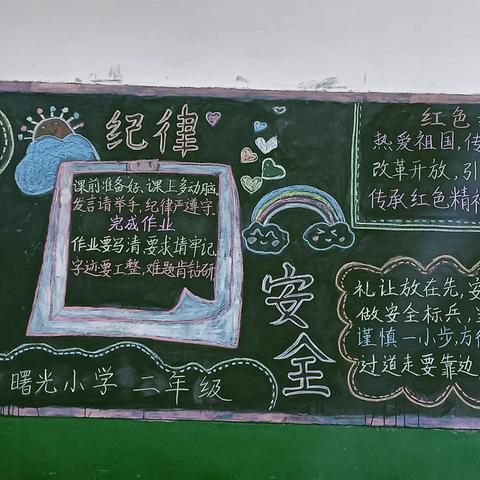 纪律
课前准备好,课上多动脑,
发言请举手,纪律严遵守.
完成作业
作业要写清,要求情牢记,
字迹要工整,难题肯钻研
曙光小学 二年级
安全
红色
热爱祖国,传
改革开放,引
传承红色精神
礼让放在先,安
做安全标兵,
谨慎一小步,方
过道走要靠边